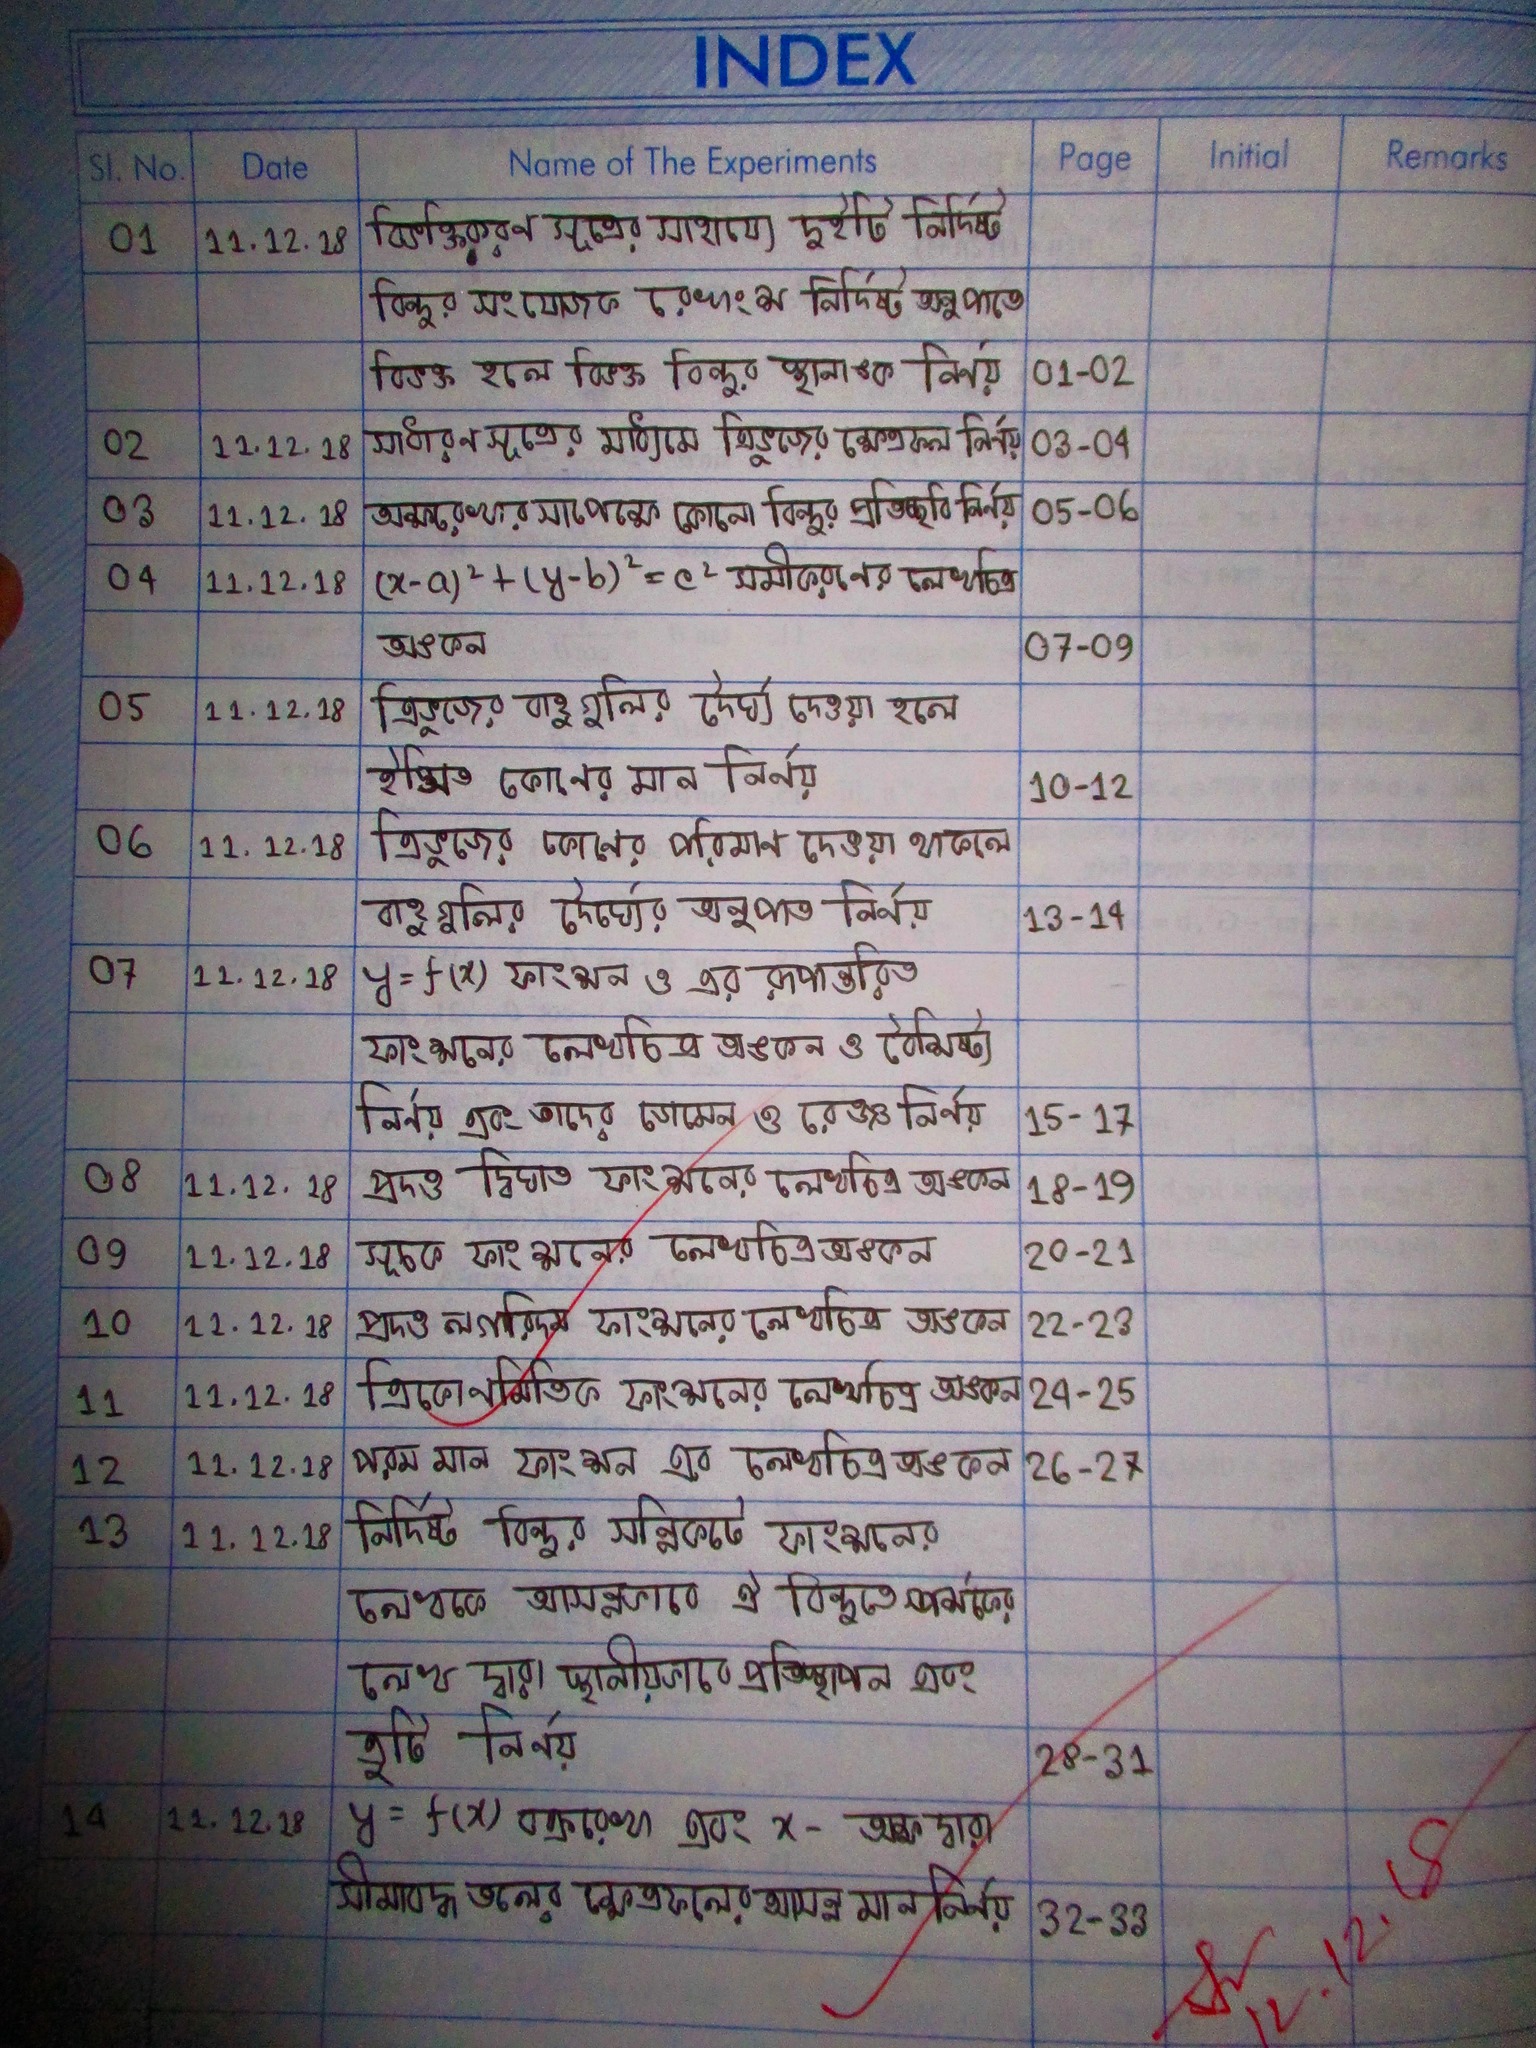 INDEX
Sl. No. Date Name of The Experiments Page Initial Remarks
01 11.12.18 বিভক্তিকরণ সূত্রের সাহায্যে দুইটি নির্দিষ্ট
বিন্দুর সংযোজক রেখাংশ নির্দিষ্ট অনুপাতে
বিভক্ত হলে বিভক্ত বিন্দুর স্থানাঙক নির্ণয় 01-02
02 11.12.18 সাধারণ সূত্রের মাধ্যমে ত্রিভুজের ক্ষেত্রফল নির্ণয় 03-04
03 11.12.18 অক্ষরেখার সাপেক্ষে কোনো বিন্দুর প্রতিচ্ছবি নির্ণয় 05-06
04 11.12.18 (x-a)²+(y-b)²=c² সমীকরণের লেখচিত্র
অঙকন 07-09
05 11.12.18 ত্রিভুজের বাহুগুলির দৈর্ঘ্য দেওয়া হলে
ইপ্সিত কোণের মান নির্ণয় 10-12
06 11.12.18 ত্রিভুজের কোণের পরিমাণ দেওয়া থাকলে
বাহুগুলির দৈর্ঘ্যের অনুপাত নির্ণয় 13-14
07 11.12.18 y=f(x) ফাংশন ও এর রূপান্তরিত
ফাংশনের লেখচিত্র অঙকন ও বৈশিষ্ট্য
নির্ণয় এবং তাদের ডোমেন ও রেঞ্জ নির্ণয় 15-17
08 11.12.18 প্রদত্ত দ্বিঘাত ফাংশনের লেখচিত্র অঙকন 18-19
09 11.12.18 সূচক ফাংশনের লেখচিত্র অঙকন 20-21
10 11.12.18 প্রদত্ত লগারিদম ফাংশনের লেখচিত্র অঙকন 22-23
11 11.12.18 ত্রিকোণমিতিক ফাংশনের লেখচিত্র অঙকন 24-25
12 11.12.18 পরম মান ফাংশন এর লেখচিত্র অঙকন 26-27
13 11.12.18 নির্দিষ্ট বিন্দুর সন্নিকটে ফাংশনের
লেখকে আসন্নভাবে ঐ বিন্দুতে স্পর্শকের
লেখ দ্বারা স্থানীয়ভাবে প্রতিস্থাপন এবং
ত্রুটি নির্ণয় 28-31
14 11.12.18 y = f(x) বক্ররেখা এবং x- অক্ষ দ্বারা
সীমাবদ্ধ তলের ক্ষেত্রফলের আসন্ন মান নির্ণয় 32-33
12.12.18